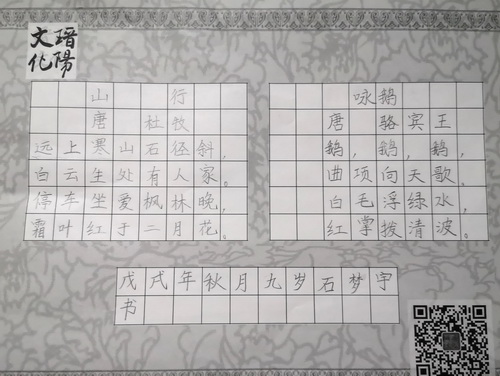 陽
文化
山行
唐 杜牧
远上寒山石径斜，
白云生处有人家。
停车坐爱枫林晚，
霜叶红于二月花。
咏鹅
唐 骆宾王
鹅，鹅，鹅，
曲项向天歌。
白毛浮绿水，
红掌拨清波。
戊戌年秋月九岁石梦宇
书